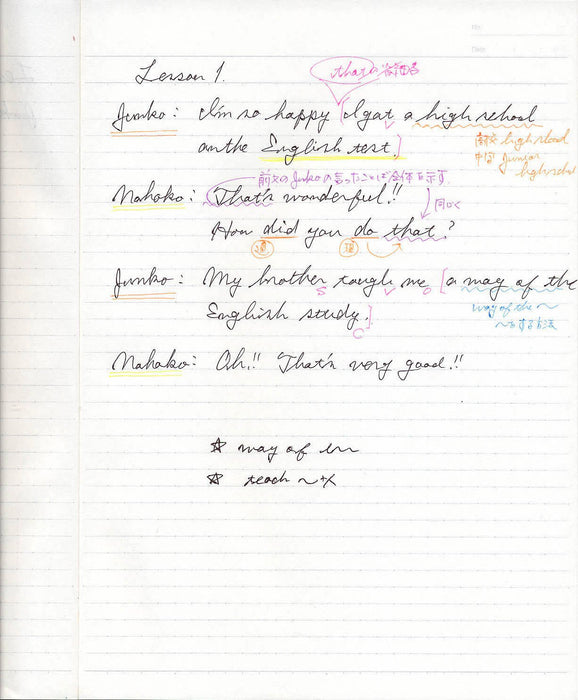 Lesson 1.
thatの省略
Junko: I'm so happy [I got a high school
on the English test.]
高校 high school
中学 junior
high school
前文のJunkoの言ったことば全体を示す
Nahoko: That's wonderful!!
同じく
How did you do that?
Junko: My brother tough me [a way of the
S V O
English study.]
O
way of the ~
~する方法
Nahoko: Oh!! That's very good!!
☆ way of
☆ teach ~